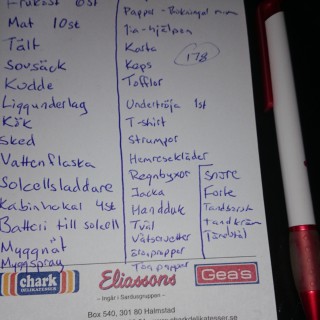 Frukost 6st
Mat 10st
Tält
Sovsäck
Kudde
Liggunderlag
Kök
Sked
Vattenflaska
Solcellsladdare
Kabinhakar 4st
Batteri till solcell
Myggnät
Myggspray
Papper
1:a-hjälpen
Karta
Kaps
Tofflor
178
Undertröja 1st
T-shirt
Strumpor
Hemresekläder
Regnbyxor
Jacka
Handduk
Tvål
Våtservetter
Toapapper
Snöre
Tandborste
Tandkräm
Tändstål
chark
DELIKATESSER
Eliassons
Gea's
- Ingår i Sardusgruppen -
Box 540, 301 80 Halmstad